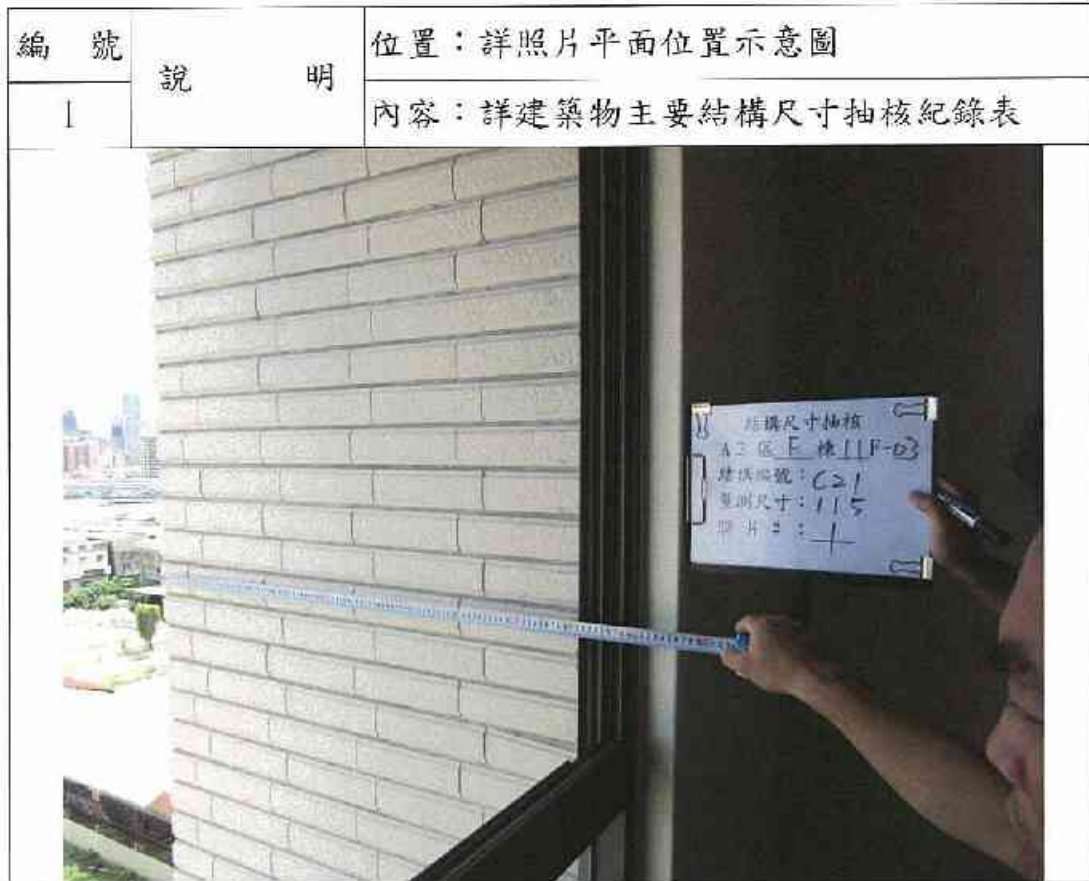 編 號
說 明
位置：詳照片平面位置示意圖
1
內容：詳建築物主要結構尺寸抽核紀錄表
結構尺寸抽核
區 棟 11F-03
C21
量測尺寸：115
照片 ：1